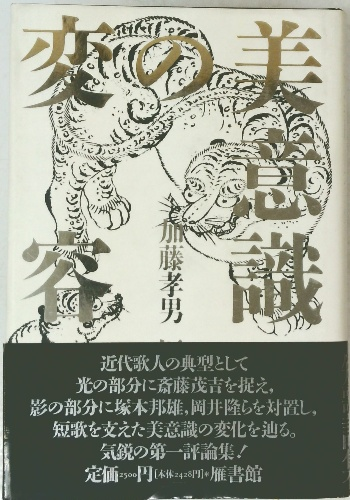 美意識
の
変容
加藤孝男
近代歌人の典型として
光の部分に斎藤茂吉を捉え,
影の部分に塚本邦雄,岡井隆らを対置し,
短歌を支えた美意識の変化を辿る。
気鋭の第一評論集!
定価2500円[本体2428円]*雁書館